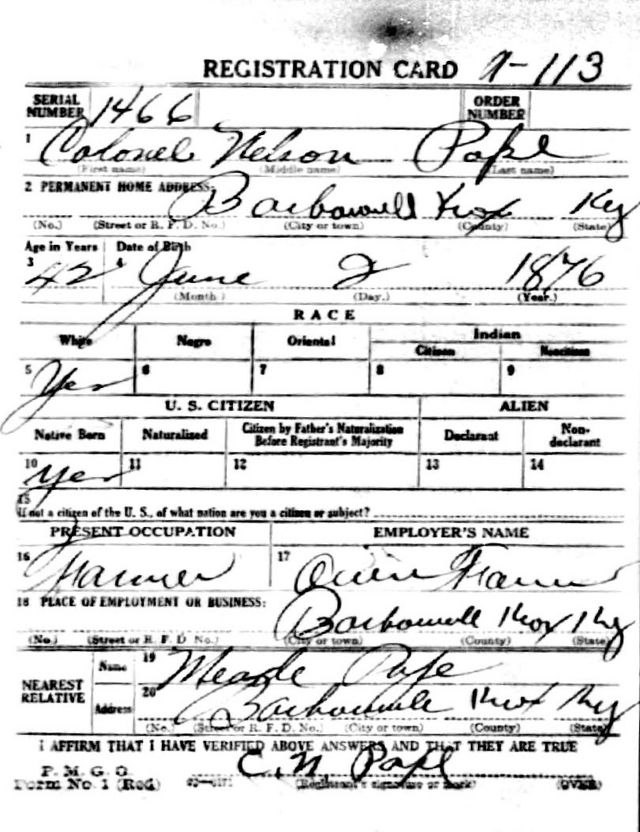 REGISTRATION CARD 9-113
SERIAL NUMBER 1466 ORDER NUMBER
1 Colonel Nelson Pope
(First name) (Middle name) (Last name)
2 PERMANENT HOME ADDRESS:
Barbourville Knox Ky
(No.) (Street or R. F. D. No.) (City or town) (County) (State)
Age in Years Date of Birth
3 42 4 June 2 1876
(Month.) (Day.) (Year.)
RACE
White Negro Oriental Indian
Citizen Noncitizen
5 Yes 6 7 8 9
U. S. CITIZEN ALIEN
Native Born Naturalized Citizen by Father's Naturalization Before Registrant's Majority Declarant Non-declarant
10 Yes 11 12 13 14
15
If not a citizen of the U. S., of what nation are you a citizen or subject?
PRESENT OCCUPATION EMPLOYER'S NAME
16 Farmer 17 Farm
18 PLACE OF EMPLOYMENT OR BUSINESS:
Barbourville Knox Ky
(No.) (Street or R. F. D No.) (City or town) (County) (State)
NEAREST RELATIVE
Name 19 Pope
Address 20 Barbourville Knox Ky
(No.) (Street or R. F. D. No.) (City or town) (County) (State)
I AFFIRM THAT I HAVE VERIFIED ABOVE ANSWERS AND THAT THEY ARE TRUE
P. M. G. O.
Form No. 1 (Red) C. N. Pope
(Registrant's signature or mark) (OVER)